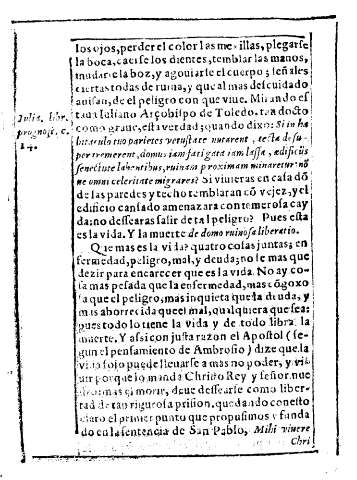 los ojos, perder el color las mexillas, plegarse
la boca, caerse los dientes, temblar las manos,
mudarse la boz, y agouiarse el cuerpo; señales
ciertas todas de ruina, y que al mas descuidado
auisan, de el peligro con que viue. Mirando es
to a Iuliano Arçobispo de Toledo. tan docto
como graue, esta verdad; quando dixo: Si in ha
Iulia. libr.
prognost. c.
14.
bitaculo tuo parietes vetustate nutarent, tecta de su-
per tremerent, domus iam fatigata iam lassa, ædificijs
senectute labentibus, ruinam proximam minaretur: nõ
ne omni celeritate migrares? Si viuieras en casa dõ
de las paredes y techo temblaran cõ vejez, y el
edificio cansado amenazara con temerosa cay
da; no dessearas salir de tal peligro? Pues esta
es la vida. Y la muerte de domo ruinosa liberatio.
Que mas es la vida? quatro colas juntas; en
fermedad, peligro, mal, y deuda; no le mas que
dezir para encarecer que es la vida. No ay co-
sa mas pesada que la enfermedad, mas cõgoxo
sa que el peligro, mas inquieta que la deuda, y
mas aborrecida que el mal, qualquiera que sea:
pues todo lo tiene la vida y de todo libra la
muerte. Y assi con justa razon el Apostol (se-
gun el pensamiento de Ambrosio) dize que la
vida solo puede lleuarse a mas no poder, y viuir
uir porque lo manda Christo Rey y señor nue
stro: mas el morir, deue dessearse como liber-
tad de tan rigurosa prision. quedando con esto
claro el primer punto que propusimos y funda
do en la sentencia de San Pablo, Mihi viuere
Chri